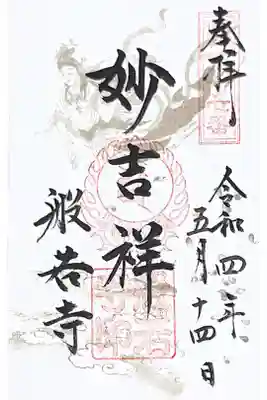 奉拝
令和四年
五月十四日
妙吉祥
般若寺